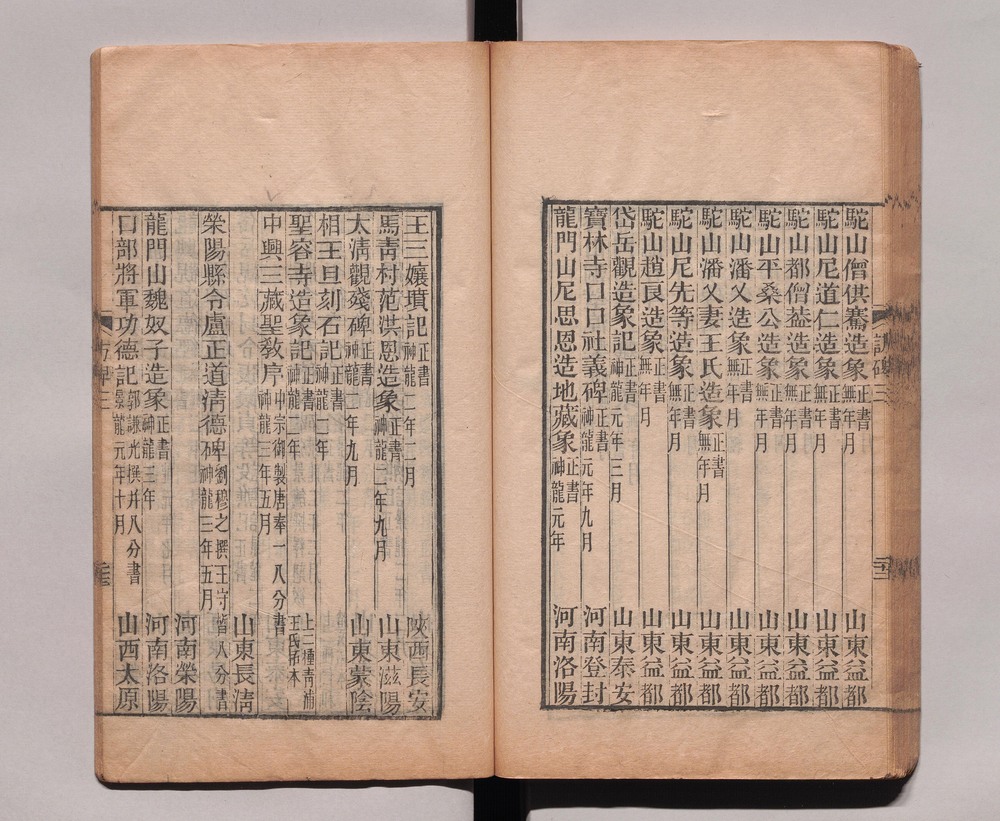 駝山僧俱鶱造象正書無年月 山東益都
駝山尼道仁造象正書無年月 山東益都
駝山都僧葢造象正書無年月 山東益都
駝山平桑公造象正書無年月 山東益都
駝山潘父造象正書無年月 山東益都
駝山潘父妻王氏造象正書無年月 山東益都
駝山尼先等造象正書無年月 山東益都
駝山趙良造象正書無年月 山東益都
岱岳觀造象記正書神龍元年三月 山東泰安
寶林寺口口社義碑正書神龍元年九月 河南登封
龍門山尼思恩造地藏象正書神龍元年 河南洛陽
王三孃墳記正書神龍二年二月 陝西長安
馬靑村范洪恩造象正書神龍二年九月 山東滋陽
太淸觀殘碑正書神龍二年九月 山東蒙陰
相王旦刻石記正書神龍二年
聖容寺造象記正書神龍二年 上二種靑浦王氏拓本
中興三藏聖敎序中宗御製唐奉一八分書神龍三年五月
山東長淸
滎陽縣令盧正道淸德碑劉穆之撰王守 八分書神龍三年五月
河南滎陽
龍門山魏奴子造象正書神龍三年 河南洛陽
口部將軍功德記郭謙光撰幷八分書景龍元年十月 山西太原